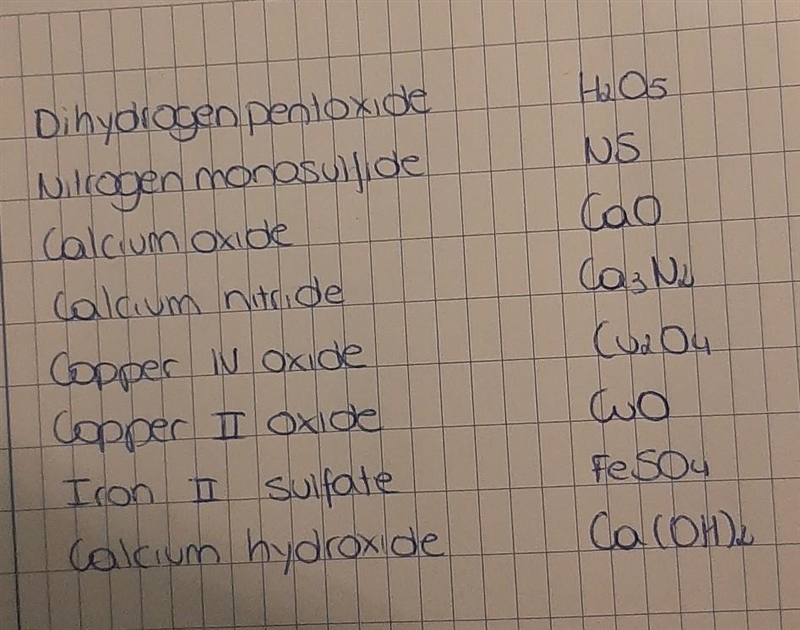 Dihydrogen pentoxide H₂O₅
Nitrogen monosulfide NS
Calcium oxide CaO
Calcium nitride Ca₃N₂
Copper IV oxide Cu₂O₄
Copper II oxide CuO
Iron II sulfate FeSO₄
Calcium hydroxide Ca(OH)₂